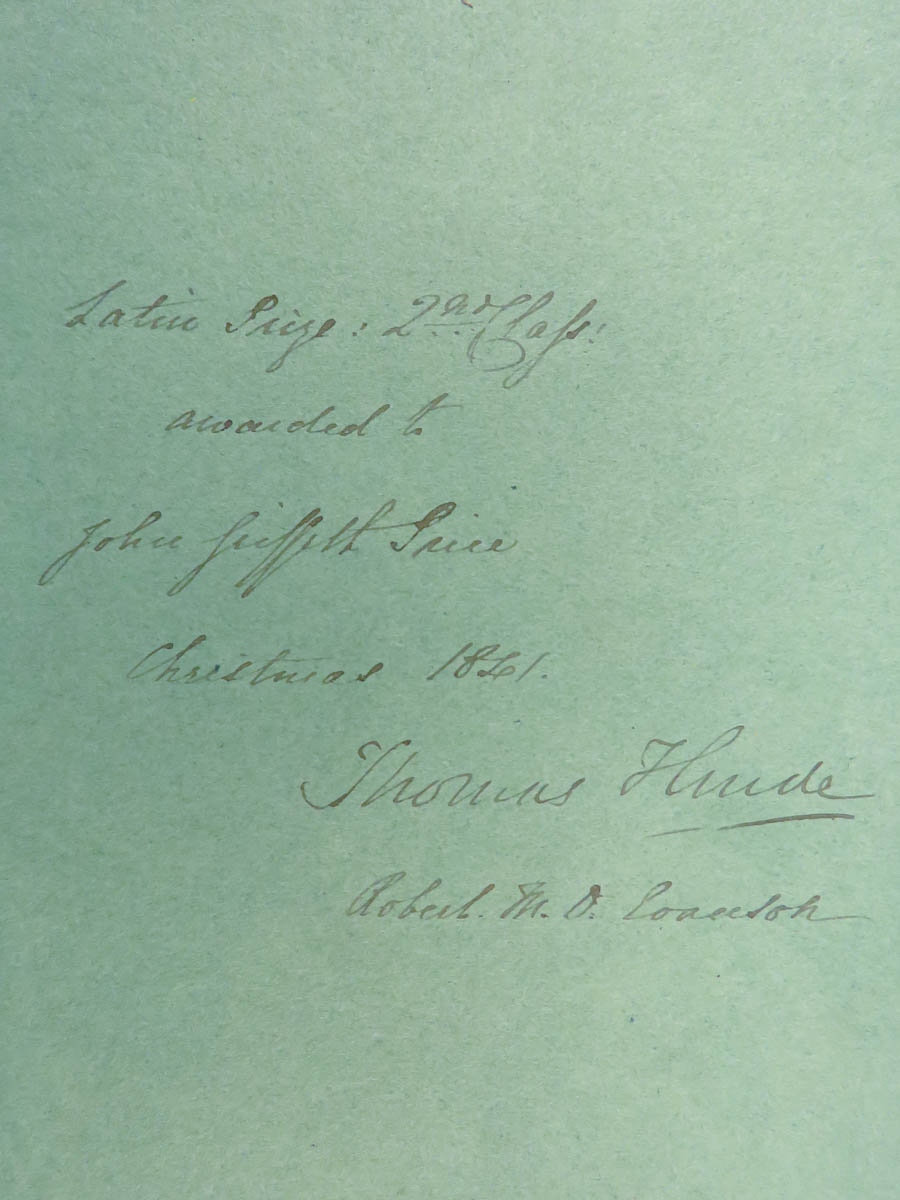 Latin Prize: 2nd Class:
awarded to
John Griffith Price
Christmas 1841.
Thomas Hinde
Robert. M. D.